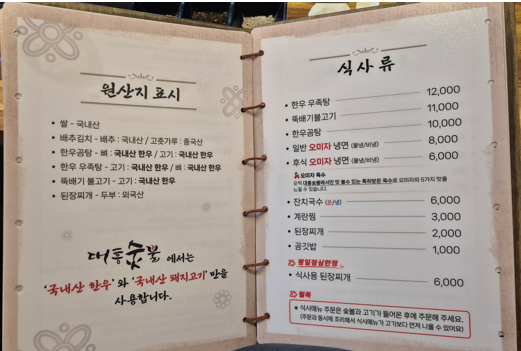 원산지 표시
• 쌀 - 국내산
• 배추김치 - 배추 : 국내산 / 고춧가루 : 중국산
• 한우곰탕 - 뼈 : 국내산 한우 / 고기 : 국내산 한우
• 한우 우족탕 - 고기 : 국내산 한우 / 뼈 : 국내산 한우
• 뚝배기 불고기 - 고기 : 국내산 한우
• 된장찌개 - 두부 : 외국산
대통숯불 에서는
'국내산 한우' 와 '국내산 돼지고기' 만을
사용합니다.
식사류
• 한우 우족탕 12,000
• 뚝배기불고기 11,000
• 한우곰탕 10,000
• 일반 오미자 냉면 (물냉/비냉) 8,000
• 후식 오미자 냉면 (물냉/비냉) 6,000
오미자 육수
오직 대통숯불에서만 맛 볼수 있는 특허받은 육수로 오미자의 5가지 맛을
느낄 수 있습니다.
• 잔치국수 (온/냉) 6,000
• 계란찜 3,000
• 된장찌개 2,000
• 공깃밥 1,000
평일점심한정
• 식사용 된장찌개 6,000
필독
• 식사메뉴 주문은 숯불과 고기가 들어온 후에 주문해 주세요.
(주문과 동시에 조리해서 식사메뉴가 고기보다 먼저 나올 수 있어요)